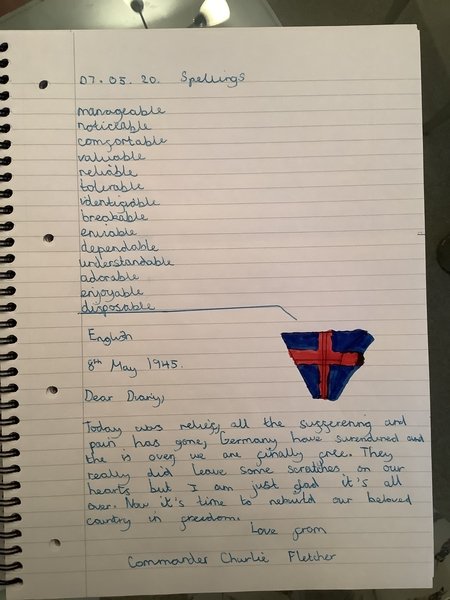 07.05.20. Spellings
manageable
noticeable
comfortable
valuable
reliable
tolerable
identifiable
breakable
enviable
dependable
understandable
adorable
enjoyable
disposable
English
8th May 1945.
Dear Diary,
Today was relief, all the sufferening and
pain has gone, Germany have surendured and
the is over we are finally free. They
really did leave some scratches on our
hearts but I am just glad it's all
over. Now it's time to rebuild our beloved
country in freedom.
Love from
Commander Charlie Fletcher